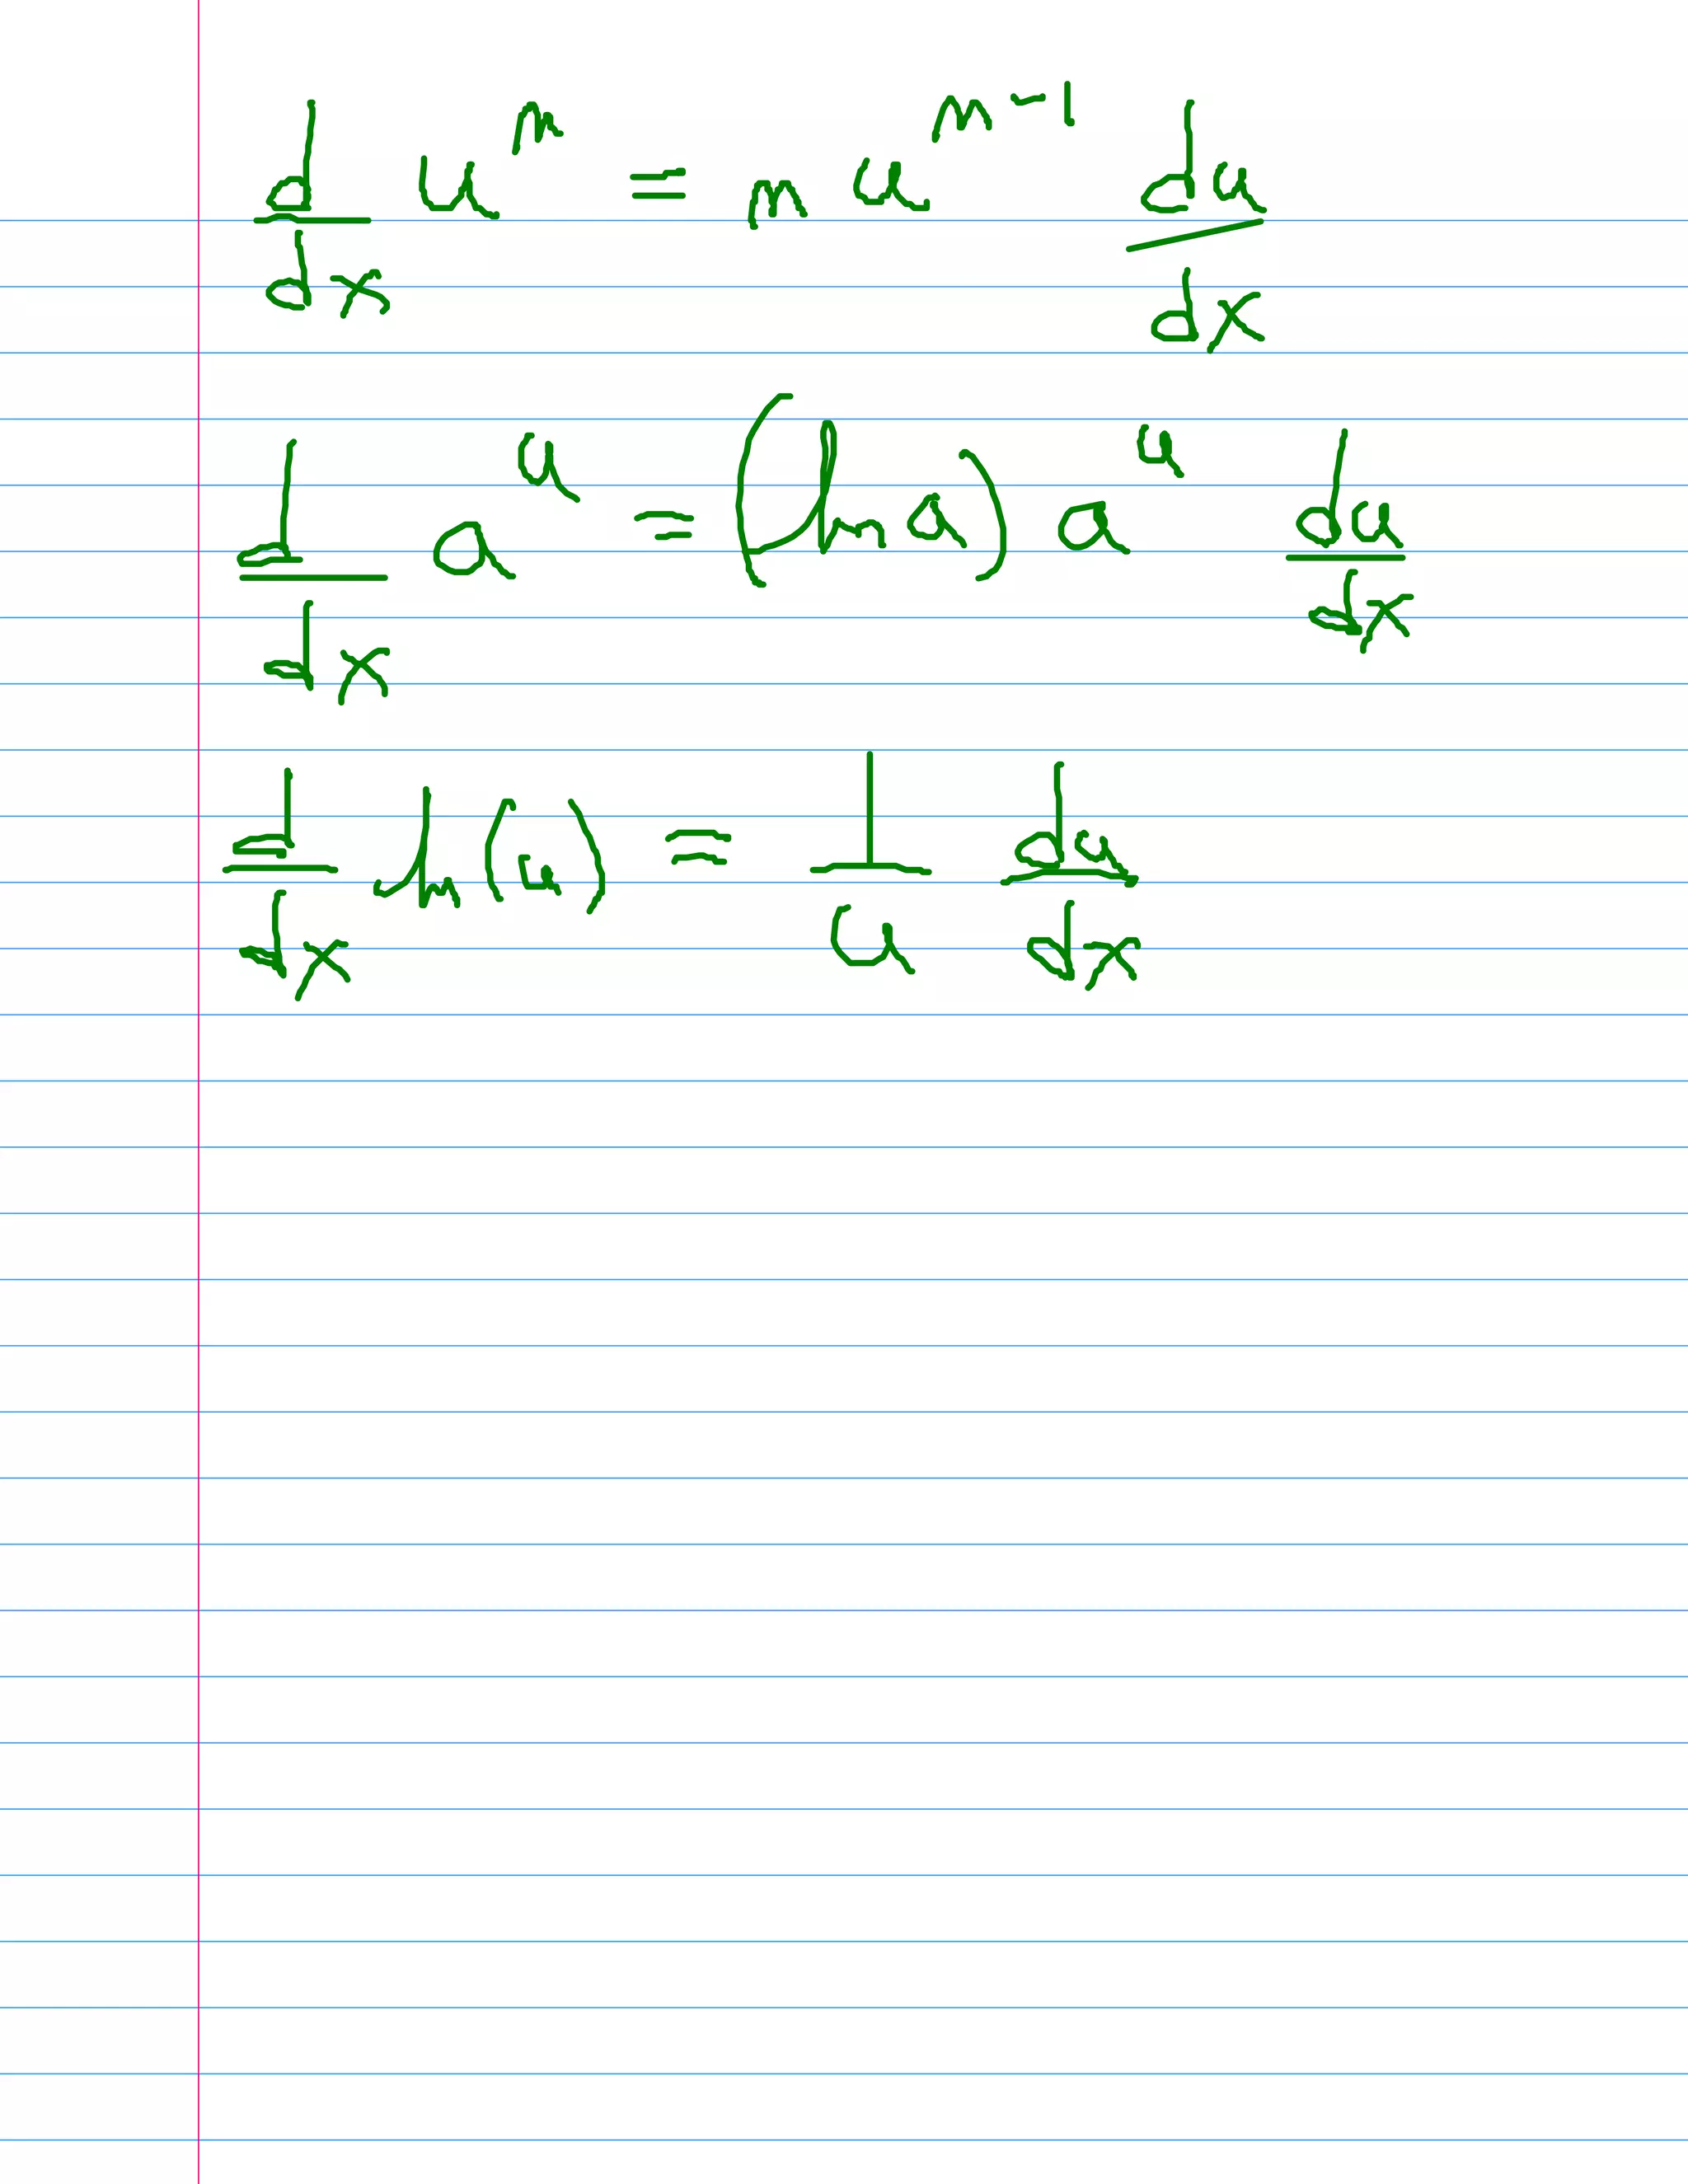 d/dx uⁿ = n uⁿ⁻¹ du/dx
d/dx aᵘ = (ln a) aᵘ du/dx
d/dx ln(u) = 1/u du/dx